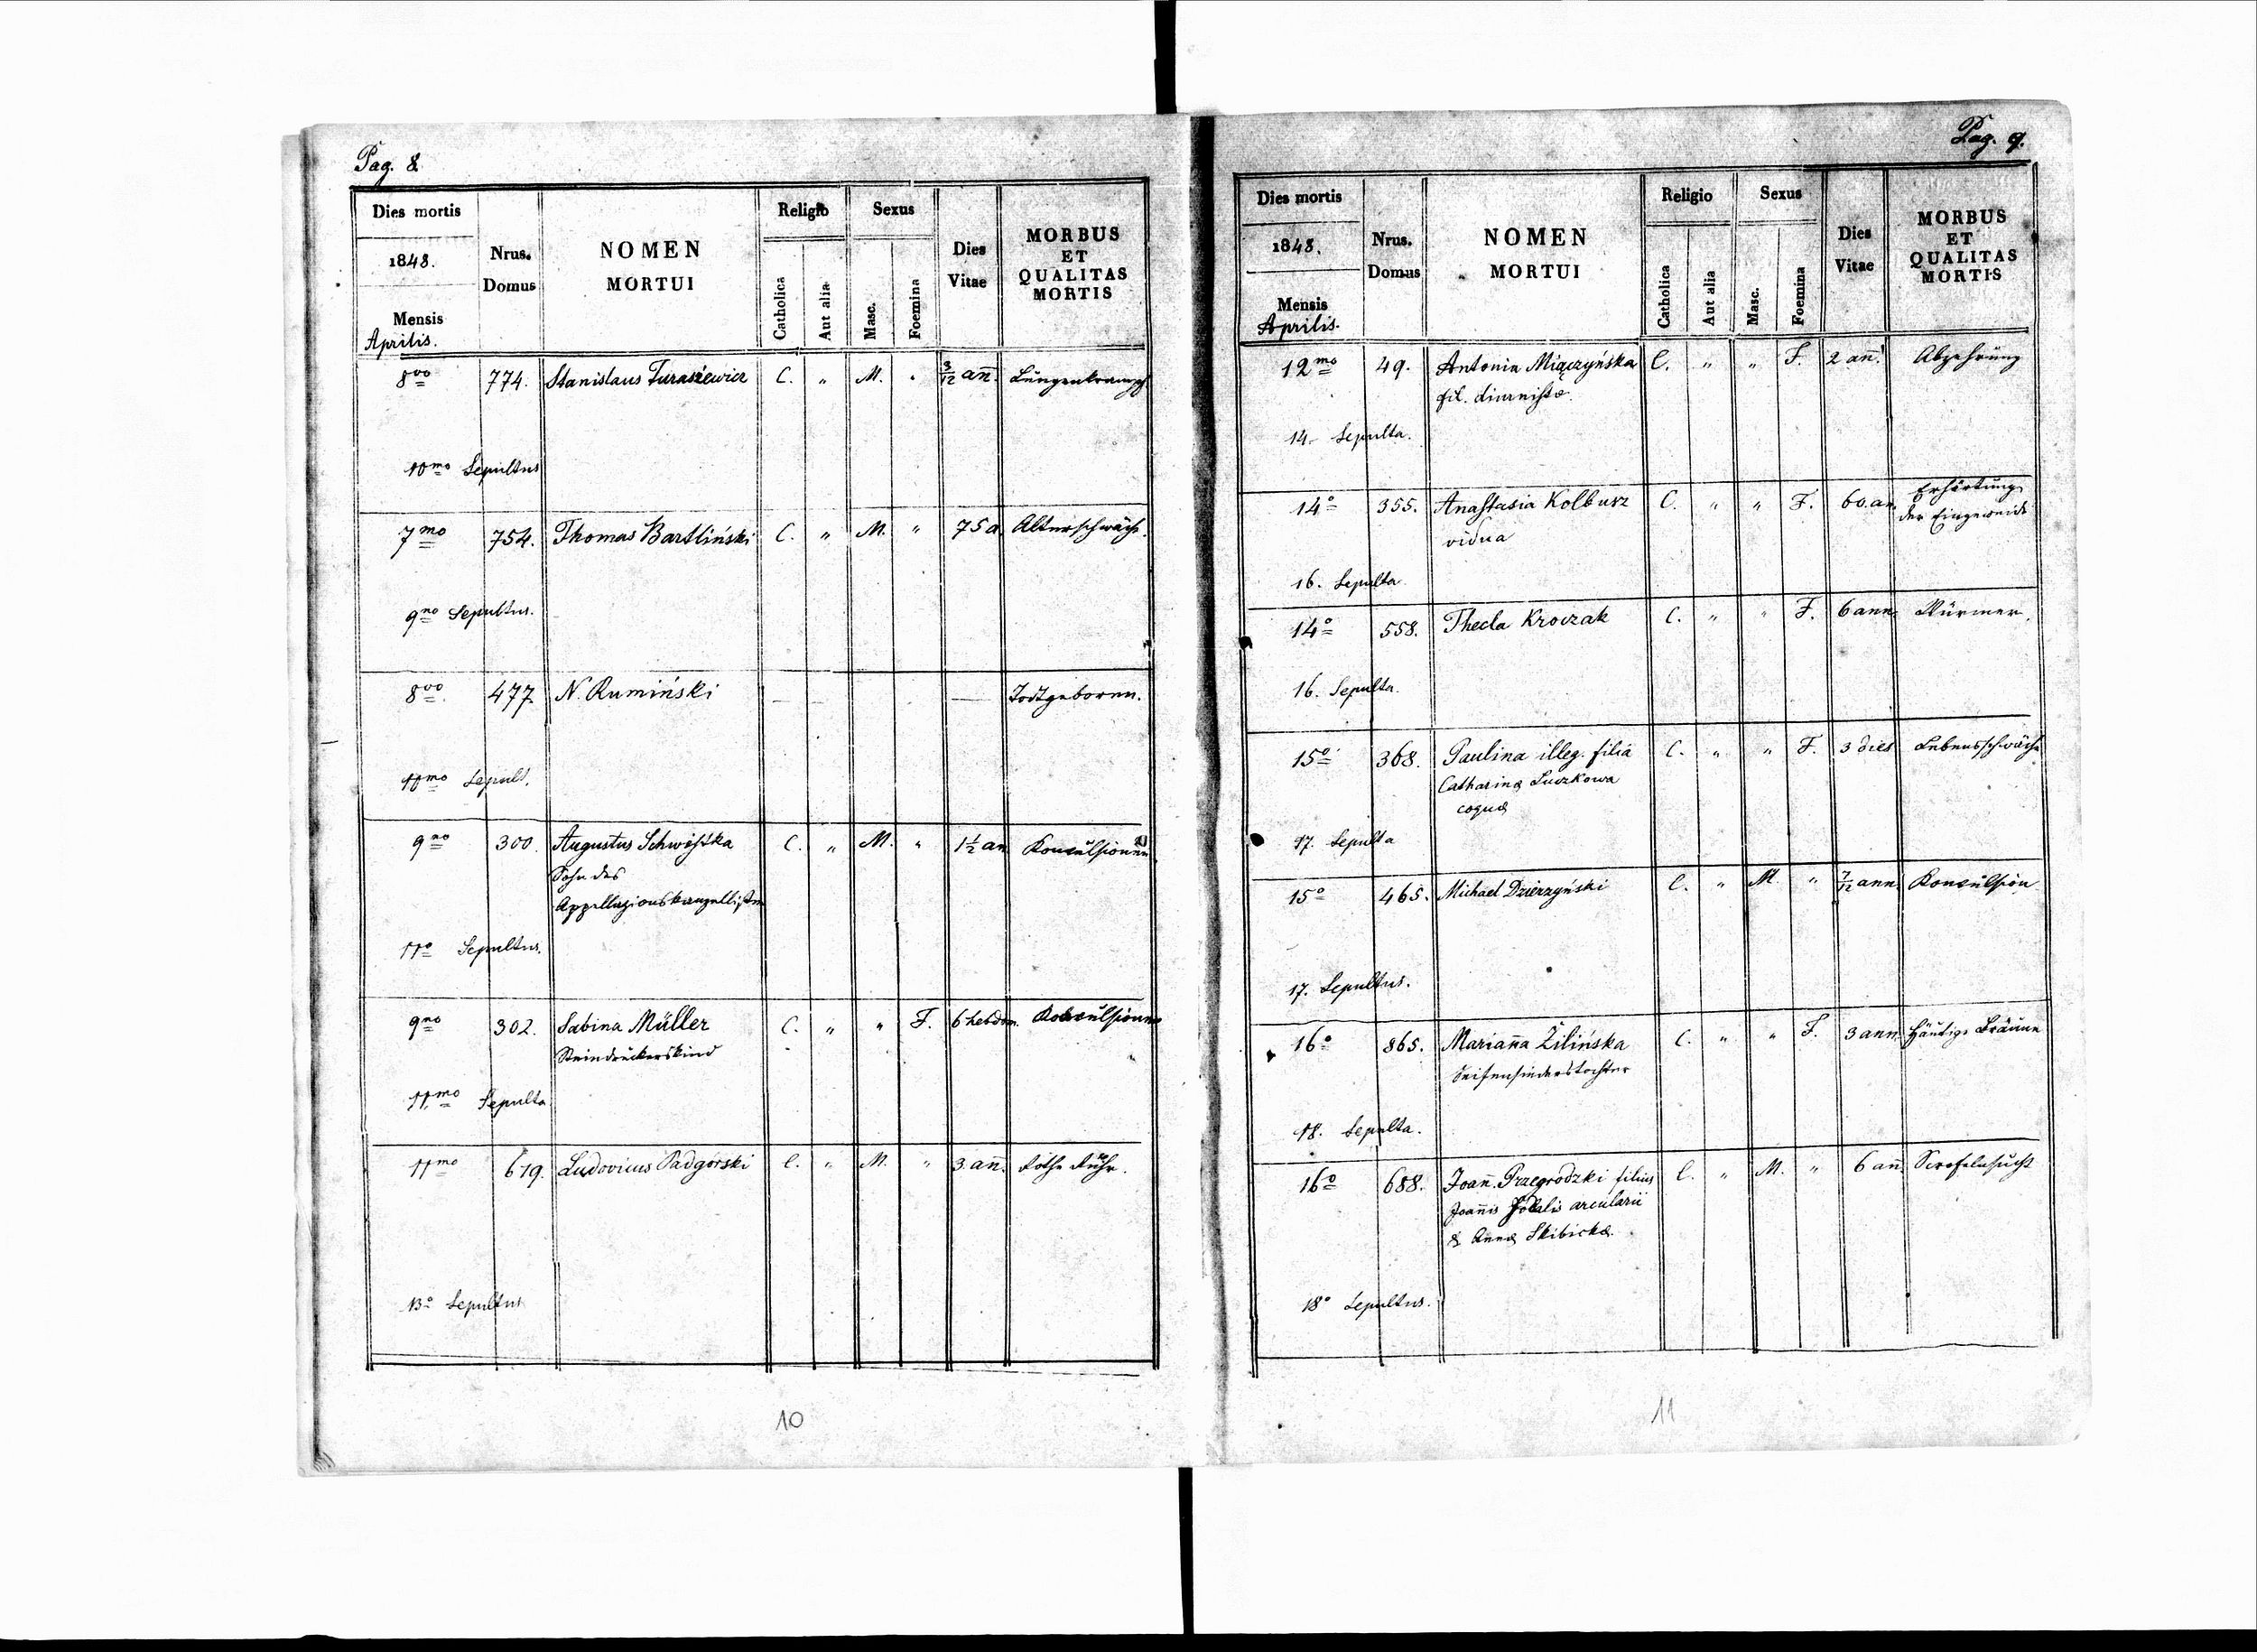 Pag. 8.
Dies mortis
1848.
Mensis
Aprilis.
Nrus.
Domus
NOMEN
MORTUI
Religio
Catholica
Aut alia
Sexus
Masc.
Foemina
Dies
Vitae
MORBUS
ET
QUALITAS
MORTIS
8vo 774. Stanislaus Turasiewicz C. „ M. „ 3/12 an̄. Lungenkrampf
10mo Sepultus
7mo 754. Thomas Bartliński C. „ M. „ 75 a. Altersschwäche.
9no Sepultus.
8vo 477. N. Rumiński — — — Todtgeboren.
10mo Sepult.
9no 300. Augustus Schwestka C. „ M. „ 1½ an Konvulsionen
Sohn des
Appellazionskanzellisten
11o Sepultus.
9no 302. Sabina Müller C. „ „ F. 6 hebdom. Konvulsionen
Steindruckerskind
11mo Sepulta
11mo 619. Ludovicus Padgorski C. „ M. „ 3. an̄. Rothe Ruhr.
13o Sepultus
10
Pag. 9.
Dies mortis
1848.
Mensis
Aprilis.
Nrus.
Domus
NOMEN
MORTUI
Religio
Catholica
Aut alia
Sexus
Masc.
Foemina
Dies
Vitae
MORBUS
ET
QUALITAS
MORTIS
12mo 49. Antonia Miączyńska C. „ „ F. 2 an̄. Abzehrung
fil. diurnistæ.
14. Sepulta.
14o 355. Anastasia Kolbusz C. „ „ F. 60. an. Erhärtung
vidua der Eingeweide
16. Sepulta
14o 558. Thecla Kroczak C. „ „ F. 6 ann. Würmer.
16. Sepulta.
15o 368. Paulina illeg. filia C. „ „ F. 3 dies Lebensschwäche
Catharinæ Luszkowa
coquæ
17. Sepulta
15o 465. Michael Dzierzyński C. „ M. „ 7/12 ann. Konvulsion
17. Sepultus.
16o 865. Marian̄a Żilińska C. „ „ F. 3 ann. Häutige Bräune
Seifensiederstochter
18. Sepulta.
16o 688. Joan̄. Przegrodzki filius C. „ M. „ 6 an̄. Scrofelsucht
Joan̄is Sodalis arcularii
& Annæ Skibickæ.
18o Sepultus.
11